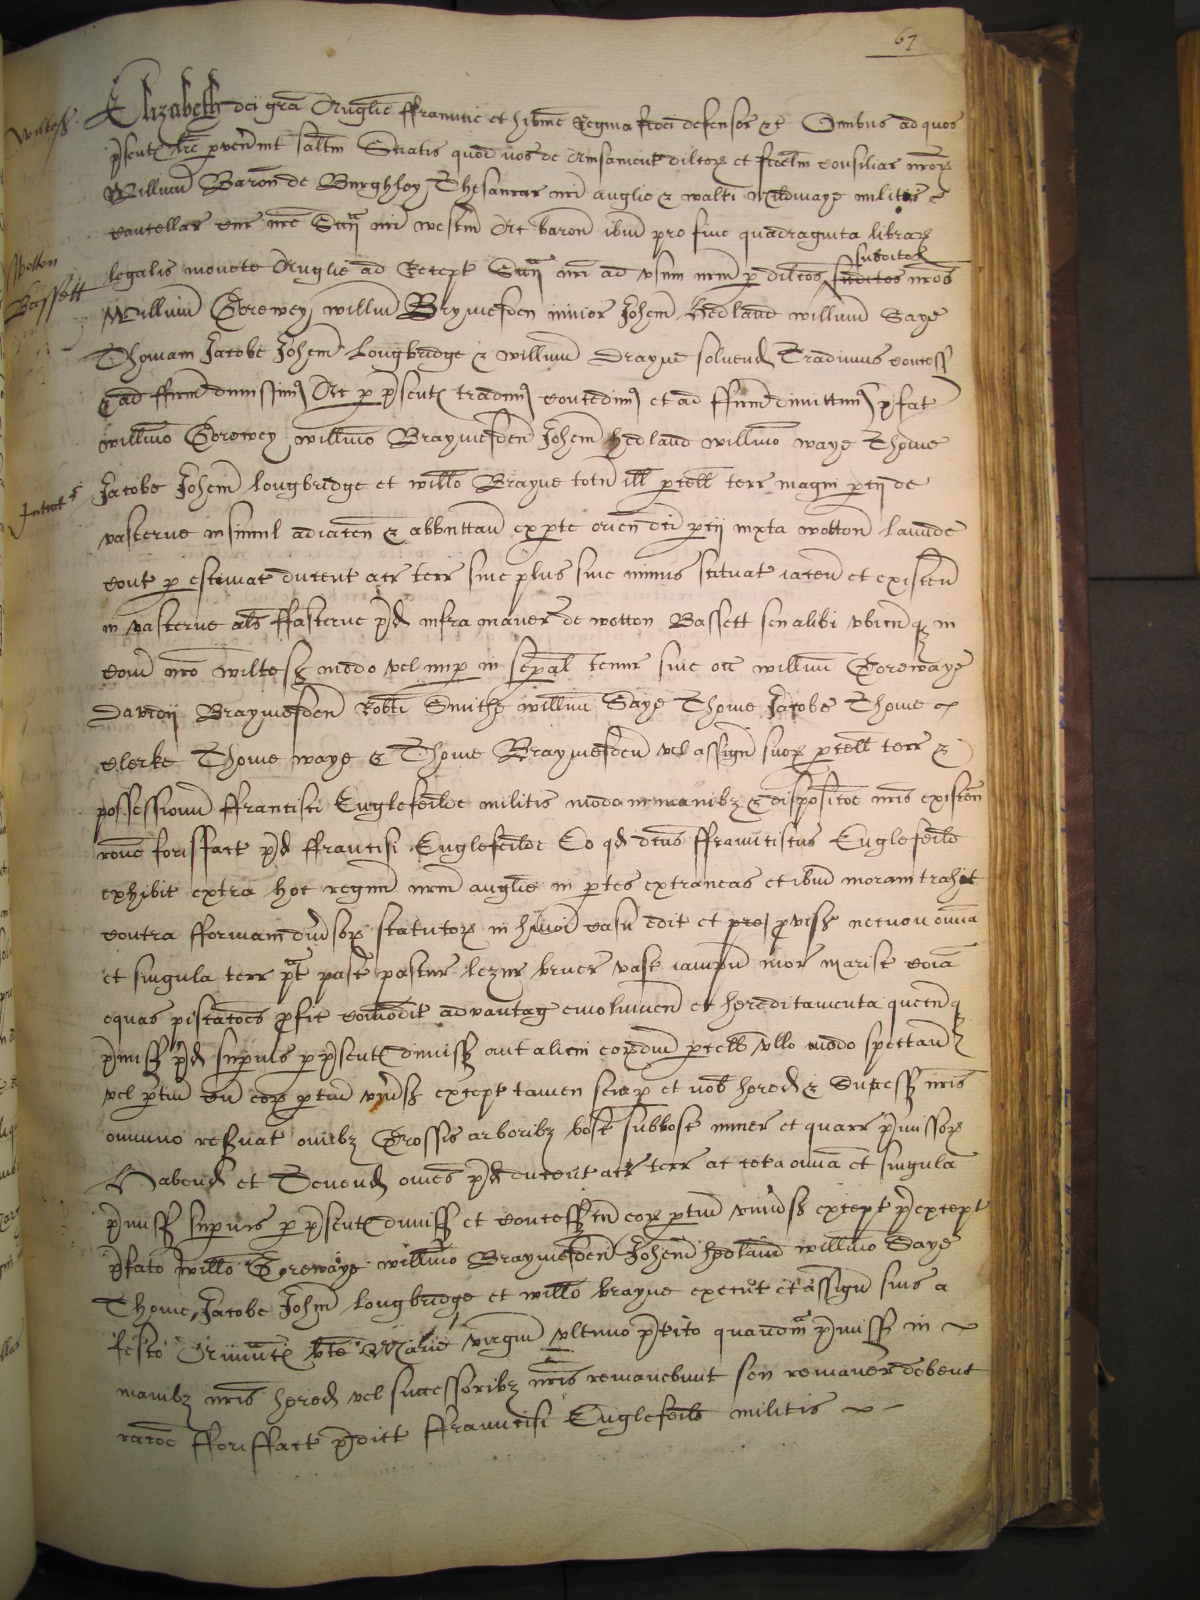 67
Wiltesh
Elizabeth dei gra Anglie ffrauncie et hibnie Regina fidei defensor &c Omibus ad quos
psent lre pvenint saltm Sciatis quod nos de Avisamento dilcor et fidelm consiliar nror
Willim Baron de Burghley Thesaurar nri anglie & walti Mildmaye militis &
cancellar cur nre Sccij nri westm Ac baron ibm pro fine quadraginta librar
subditos
legalis monete Anglie ad Recept Sccij nri ad usum nrm p dilcos subditos nros
Wotton
Bassett
Willim Gorewey willm Braymesden iunior Johem Hedland willim Saye
Thomam Jacobe Johem Longbridge & willim Brayne solvend Tradimus concess
& ad ffirm dimissim Ac p psent tradim concedim et ad ffirm dimittim pfat
willmo Gorewey willmo Braymesden Johem Hedland willmo waye Thome
Intrat
Jacobe Johem Longbridge et willo Brayne totm ill pcell terr magni pcij de
vasterne insimul adiacen & abbuttan ex pte orien dci pcij iuxta wotton launde
cont p estimac ducent acr terr sive plus sive minus scituat iacen et existen
in vasterne als ffasterne pd infra maner de wotton Bassett seu alibi ubicunq in
com nro wiltesh modo vel nup in sepal tenur sive occ willim Gorewaye
Davidij Braymesden Robti Smithe willim Saye Thome Jacobe Thome
Clerke Thome waye & Thome Braymesden vel assign suor pcell terr &
possessionu ffrancisci Englefeilde militis modo in manibz & disposicoe nris existen
racone forisfact pd ffrancisi Englefeilde Eo qd dcus ffraunciscus Englefeild
exhibit extra hoc regnm nrm anglie in ptes extraneas et ibm moram trahit
contra fformam divsor statutor in huioi casu edit et pvis necnon omia
et singula terr pt past pastur lezur bruer vast iampn mor marisc coia
aquas piscacoes pfic comodit advantag emolumen et hereditamenta quecunq
pmiss pd supius p psent dimiss aut alicui eordm pcell ullo modo spectan
vel ptin cum eor ptin univs except tamen semp et nob hered & Success nris
omnino resvat omibz Grossis arboribz bosc subbosc miner et quarr pmissor
Habend et Tenend omes pd ducent acr terr ac cetera omia et singula
pmiss supius p psent dimiss et concess cum eor ptin univs except pexcept
pfato willo Gorewaye willmo Braymesden Johem hedland willmo Saye
Thome Jacobe Johm Longbridge et willo brayne execut et assign suis a
festo Annunc bte Marie virgin ultimo pterito quandm pmiss in
manibz nris hered vel successoribz nris remanebunt seu remaner debent
racoe fforisfact pdict ffrauncisi Englefeild militis